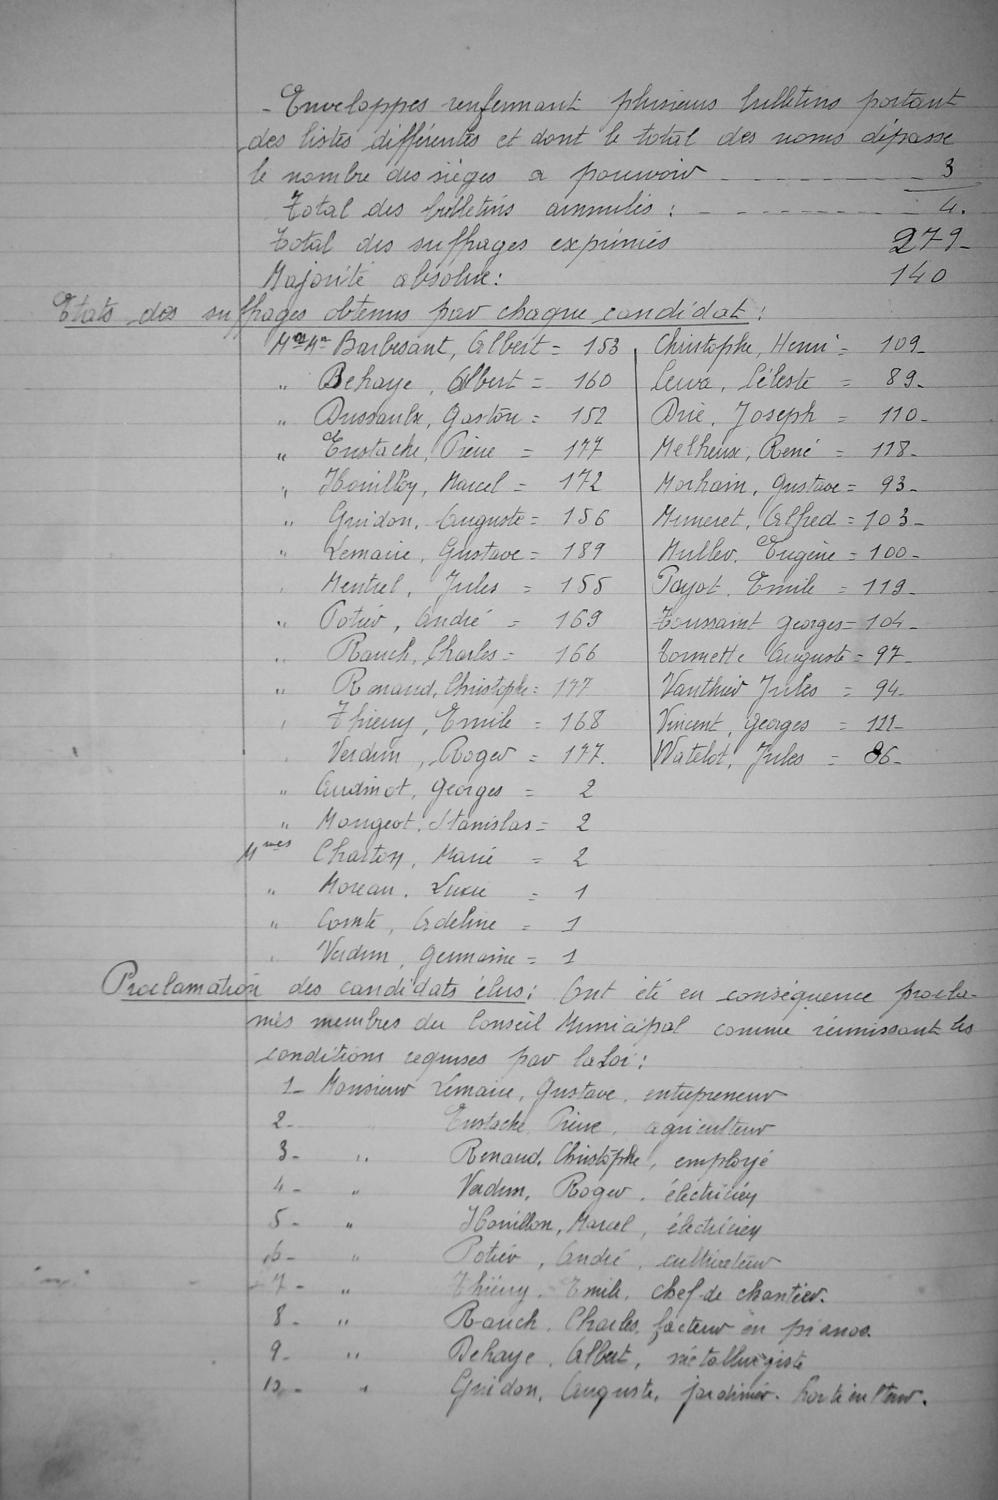 - Enveloppes renfermant plusieurs bulletins portant
des listes différentes et dont le total des noms dépasse
le nombre des sièges a pourvoir 3
Total des bulletins annulés : 4.
Total des suffrages exprimés 279-
Majorité absolue: 140
Etats des suffrages obtenus par chaque candidat :
Barbesant, Albert = 153
" Behaye, Albert = 160
" Dussaulx, Gaston = 152
" Eustache, Pierre = 177
" Houillon, Marcel = 172
" Guidon, Auguste = 156
" Lemaire, Gustave = 189
" Mentrel, Jules = 155
" Potier, André = 169
" Rauch, Charles = 166
" Renaud, Christophe = 177
" Thiery, Emile = 168
" Verdun, Roger = 177.
" Audinot, Georges = 2
" Mougeot, Stanislas = 2
Mmes Charton, Marie = 2
" Moreau, Lucie = 1
" Comte, Adeline = 1
" Verdun, Germaine = 1
Christophe, Henri = 109-
Céleste = 89-
Drié, Joseph = 110-
Melheux, René = 118-
Morhain, Gustave = 93-
Mimeret, Alfred = 103-
Muller, Eugène = 100-
Payot, Emile = 119-
Toussaint Georges = 104-
Auguste = 97-
Vauthier Jules = 94-
Vincent, Georges = 111-
Watelot, Jules = 86-
Proclamation des candidats élus: Ont été en conséquence procla-
més membres du Conseil Municipal comme réunissant les
conditions requises par la Loi :
1- Monsieur Lemaire, Gustave, entrepreneur
2- Eustache Pierre, agriculteur
3- " Renaud, Christophe, employé
4- " Verdun, Roger, électricien
5- " Houillon, Marcel, électricien
6- " Potier, André, cultivateur
7- " Thiery, Emile, chef de chantier.
8- " Rauch, Charles, facteur en pianos.
9- " Behaye, Albert, métallurgiste
10- " Guidon, Auguste, jardinier-horticulteur.